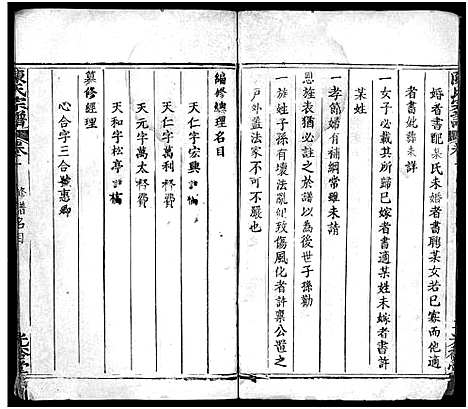 婚者書配某氏未婚者書聘某女若已寡而他適
者書此葬未詳
一女子必載其所歸已嫁者書適某姓未嫁者書許
某姓
一孝節婦有補綱常雖未請
恩旌表猶必註之於譜以為後世子孫勸
一子孫有壞法亂紀致傷風化者許稟公置之
戶外蓋法家不可不嚴也
編修總理名目
天仁字宏興
天仁字萬利
天元字萬太
天和字松亭
募修經理
心合字三合 惠卿
陳氏宗譜
修譜名目